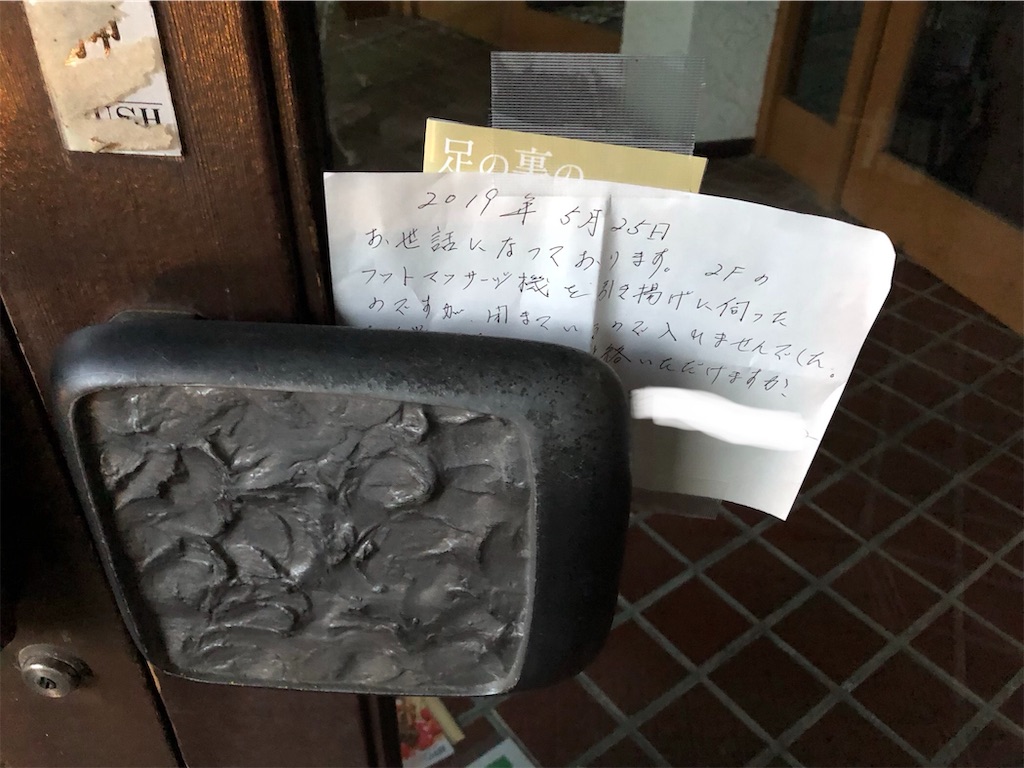 USH
足の裏の
2019年 5月25日
お世話になっております。 2Fの
フットマッサージ機を引き揚げに伺った
のですが、閉まっているので入れませんでした。
絡いただけますか、